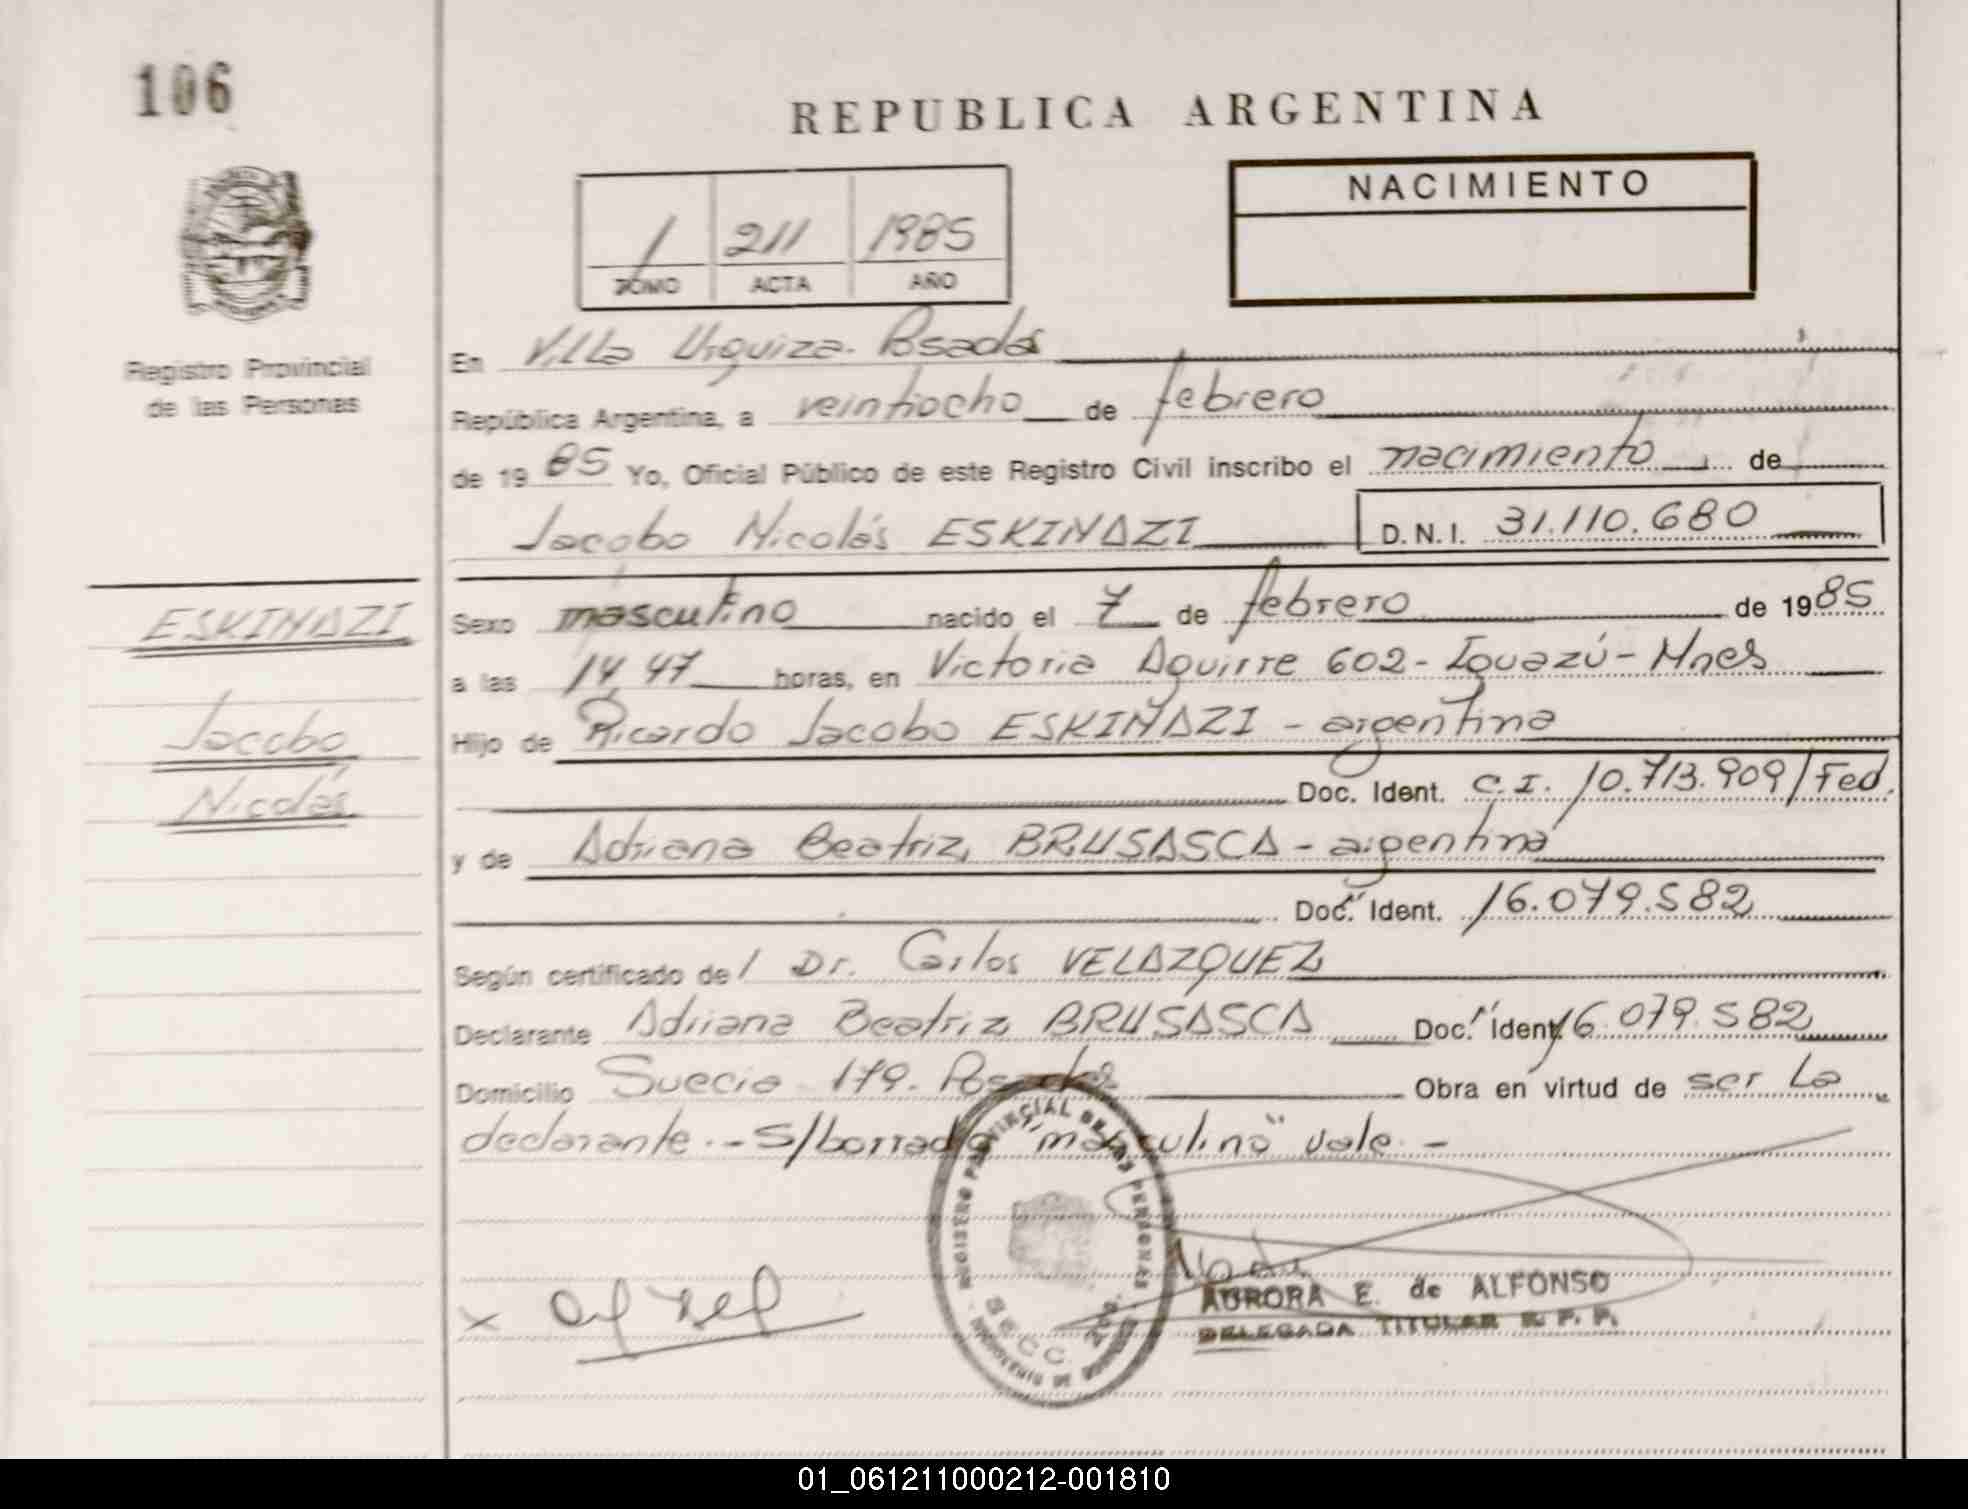 106
REPUBLICA ARGENTINA
NACIMIENTO
1 211 1985
TOMO ACTA AÑO
Registro Provincial
de las Personas
En Villa Urquiza - Posadas
República Argentina, a veintiocho de febrero
de 1985 Yo, Oficial Público de este Registro Civil inscribo el nacimiento de
Jacobo Nicolás ESKINAZI D.N.I. 31.110.680
ESKINAZI
Jacobo
Nicolás
Sexo masculino nacido el 7 de febrero de 1985
a las 14,47 horas, en Victoria Aguirre 602 - Iguazú - Mnes
Hijo de Ricardo Jacobo ESKINAZI - argentina
Doc. Ident. C.I. 10.713.909/Fed.
y de Adriana Beatriz BRUSASCA - argentina
Doc. Ident. 16.079.582
Según certificado del Dr. Carlos VELAZQUEZ
Declarante Adriana Beatriz BRUSASCA Doc. Ident. 16.079.582
Domicilio Suecia 179. Posadas Obra en virtud de ser la
declarante.- S/borrado "masculino" vale.-
REGISTRO PROVINCIAL DE LAS PERSONAS
SECC.
AURORA E. de ALFONSO
DELEGADA TITULAR R. P. P.
01_061211000212-001810